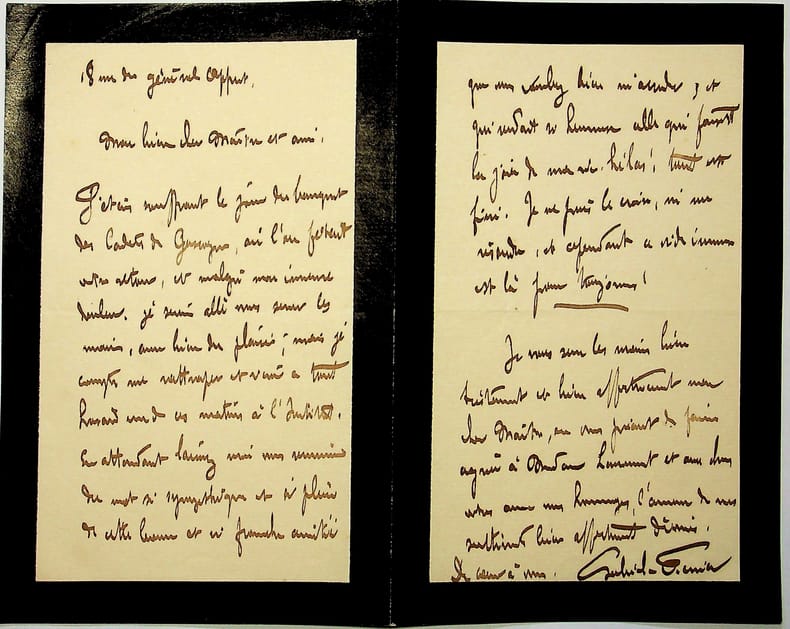 18 rue du général Appert.
Mon bien cher Maître et ami.
J'étais souffrant le jour du banquet
des Cadets de Gascogne, où l'on fêtait
votre retour, et malgré mon immense
douleur. je serais allé vous serrer les
mains, avec bien du plaisir; mais je
compte me rattraper et venir à tout
hasard un de ces matins à l'Institut.
En attendant laissez moi vous remercier
du mot si sympathique et si plein
de cette bonne et si franche amitié
que vous voulez bien m'accorder; et
qui rendait si heureuse celle qui faisait
la joie de ma vie. hélas! tout est
fini. Je ne puis le croire, ni me
résoudre, et cependant ce vide immense
est là pour toujours!
Je vous serre les mains bien
tristement et bien affectueusement mon
cher Maître, en vous priant de faire
agréer à Madame et aux chers
votres avec mes hommages, de mes
sentiments bien affectueusement dévoués.
De cœur à vous. Gabriel Ferrier